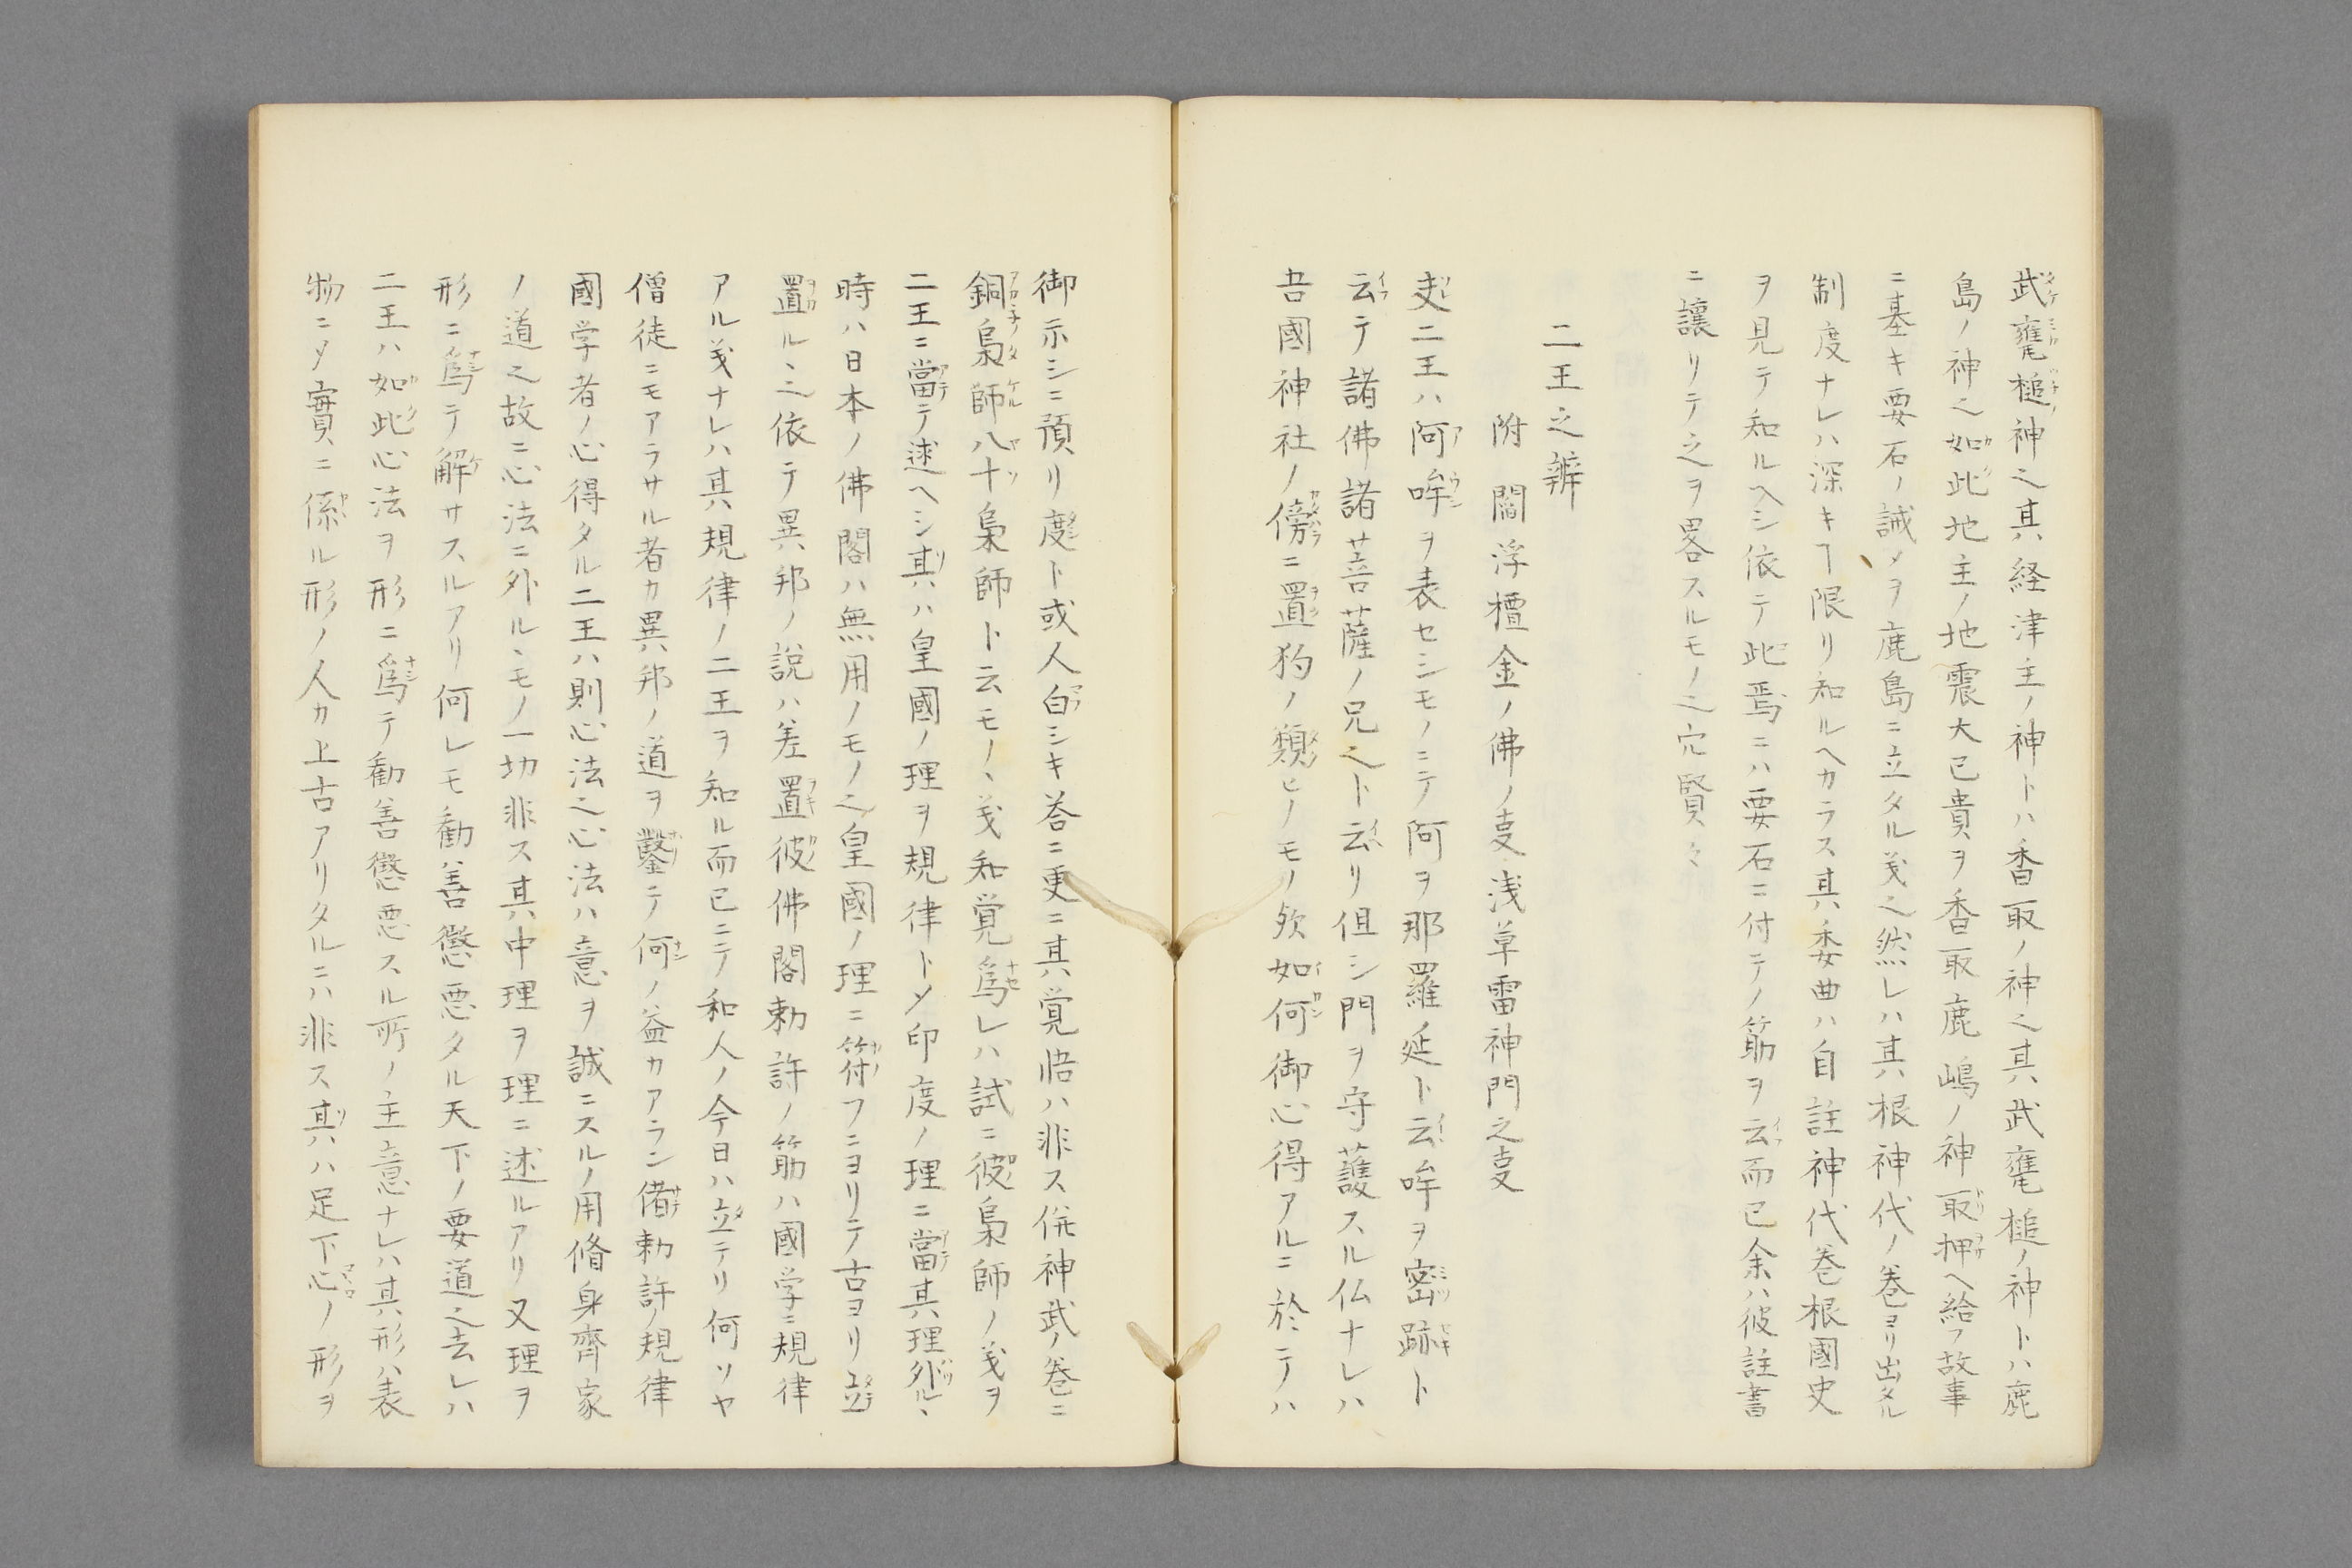 武甕槌神之其経津主ノ神トハ香取ノ神之其武甕槌ノ神トハ鹿
島ノ神之如此地主ノ地震大已貴ヲ香取鹿嶋ノ神取押ヘ給フ故事
ニ基キ要石ノ誡メヲ鹿島ニ立タル義之然レハ其根神代ノ巻ヨリ出タル
制度ナレハ深キヿ限リ知ルヘカラス其委曲ハ自註神代巻根國史
ヲ見テ知ルヘシ依テ此焉ニハ要石ニ付テノ筋ヲ云而已余ハ彼註書
ニ讓リテ之ヲ畧スルモノ之穴賢々
二王之辨
附 閻浮檀金ノ佛ノ㕝浅草雷神門之㕝
夫二王ハ阿吽ヲ表セシモノニテ阿ヲ那羅延ト云吽ヲ密跡ト
云テ諸佛諸菩薩ノ兄之ト云リ但シ門ヲ守護スル仏ナレハ
吾國神社ノ傍ニ置狗ノ類ヒノモノ欤如何御心得アルニ於テハ
御示シニ預リ度ト或人白シキ答ニ更ニ其覚悟ハ非ス併神武ノ巻ニ
銅梟師八十梟師ト云モノヽ義和覚爲レハ試ニ彼梟師ノ義ヲ
二王ニ當テ述ヘシ其ハ皇國ノ理ヲ規律トメ印度ノ理ニ當其理外ルヽ
時ハ日本ノ佛閣ハ無用ノモノ之皇國ノ理ニ符フニヨリテ古ヨリ立
置ルヽ之依テ異邦ノ説ハ差置彼佛閣勅許ノ筋ハ國学ニ規律
アル義ナレハ其規律ノ二王ヲ知ル而已ニテ和人ノ今日ハ立テリ何ソヤ
僧徒ニモアラサル者カ異邦ノ道ヲ鑿テ何ノ益カアラン偖勅許ノ規律
國学者ノ心得タル二王ハ則心法之心法ハ意ヲ誠ニスルノ用脩身齊家
ノ道之故ニ心法ニ外ルヽモノ一切非ス其中理ヲ理ニ述ルアリ又理ヲ
形ニ爲テ解サスルアリ何レモ勸善懲悪タル天下ノ要道之去レハ
二王ハ如此心法ヲ形ニ爲テ勸善懲悪スル所ノ主意ナレハ其形ハ表
物ニメ實ニ係ル形ノ人カ上古アリタルニハ非ス其ハ足下心ノ形ヲ